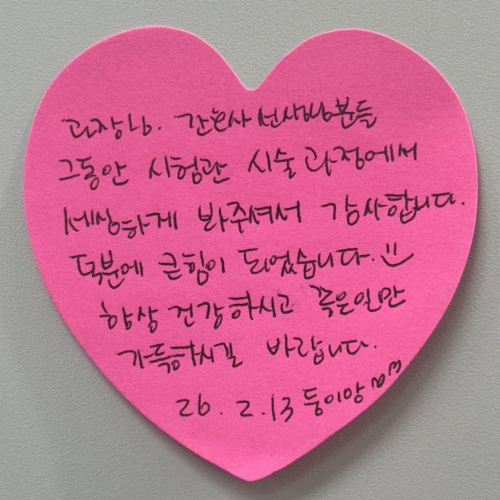 과장님. 간호사 선생님분들
그동안 시험관 시술 과정에서
세심하게 봐주셔서 감사합니다.
덕분에 큰힘이 되었습니다.
항상 건강하시고 좋은일만
가득하시길 바랍니다.
26. 2. 13 둥이맘